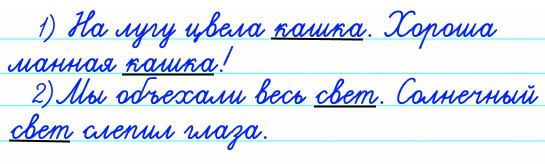 1) На лугу цвела кашка. Хороша
манная кашка!
2) Мы объехали весь свет. Солнечный
свет слепил глаза.